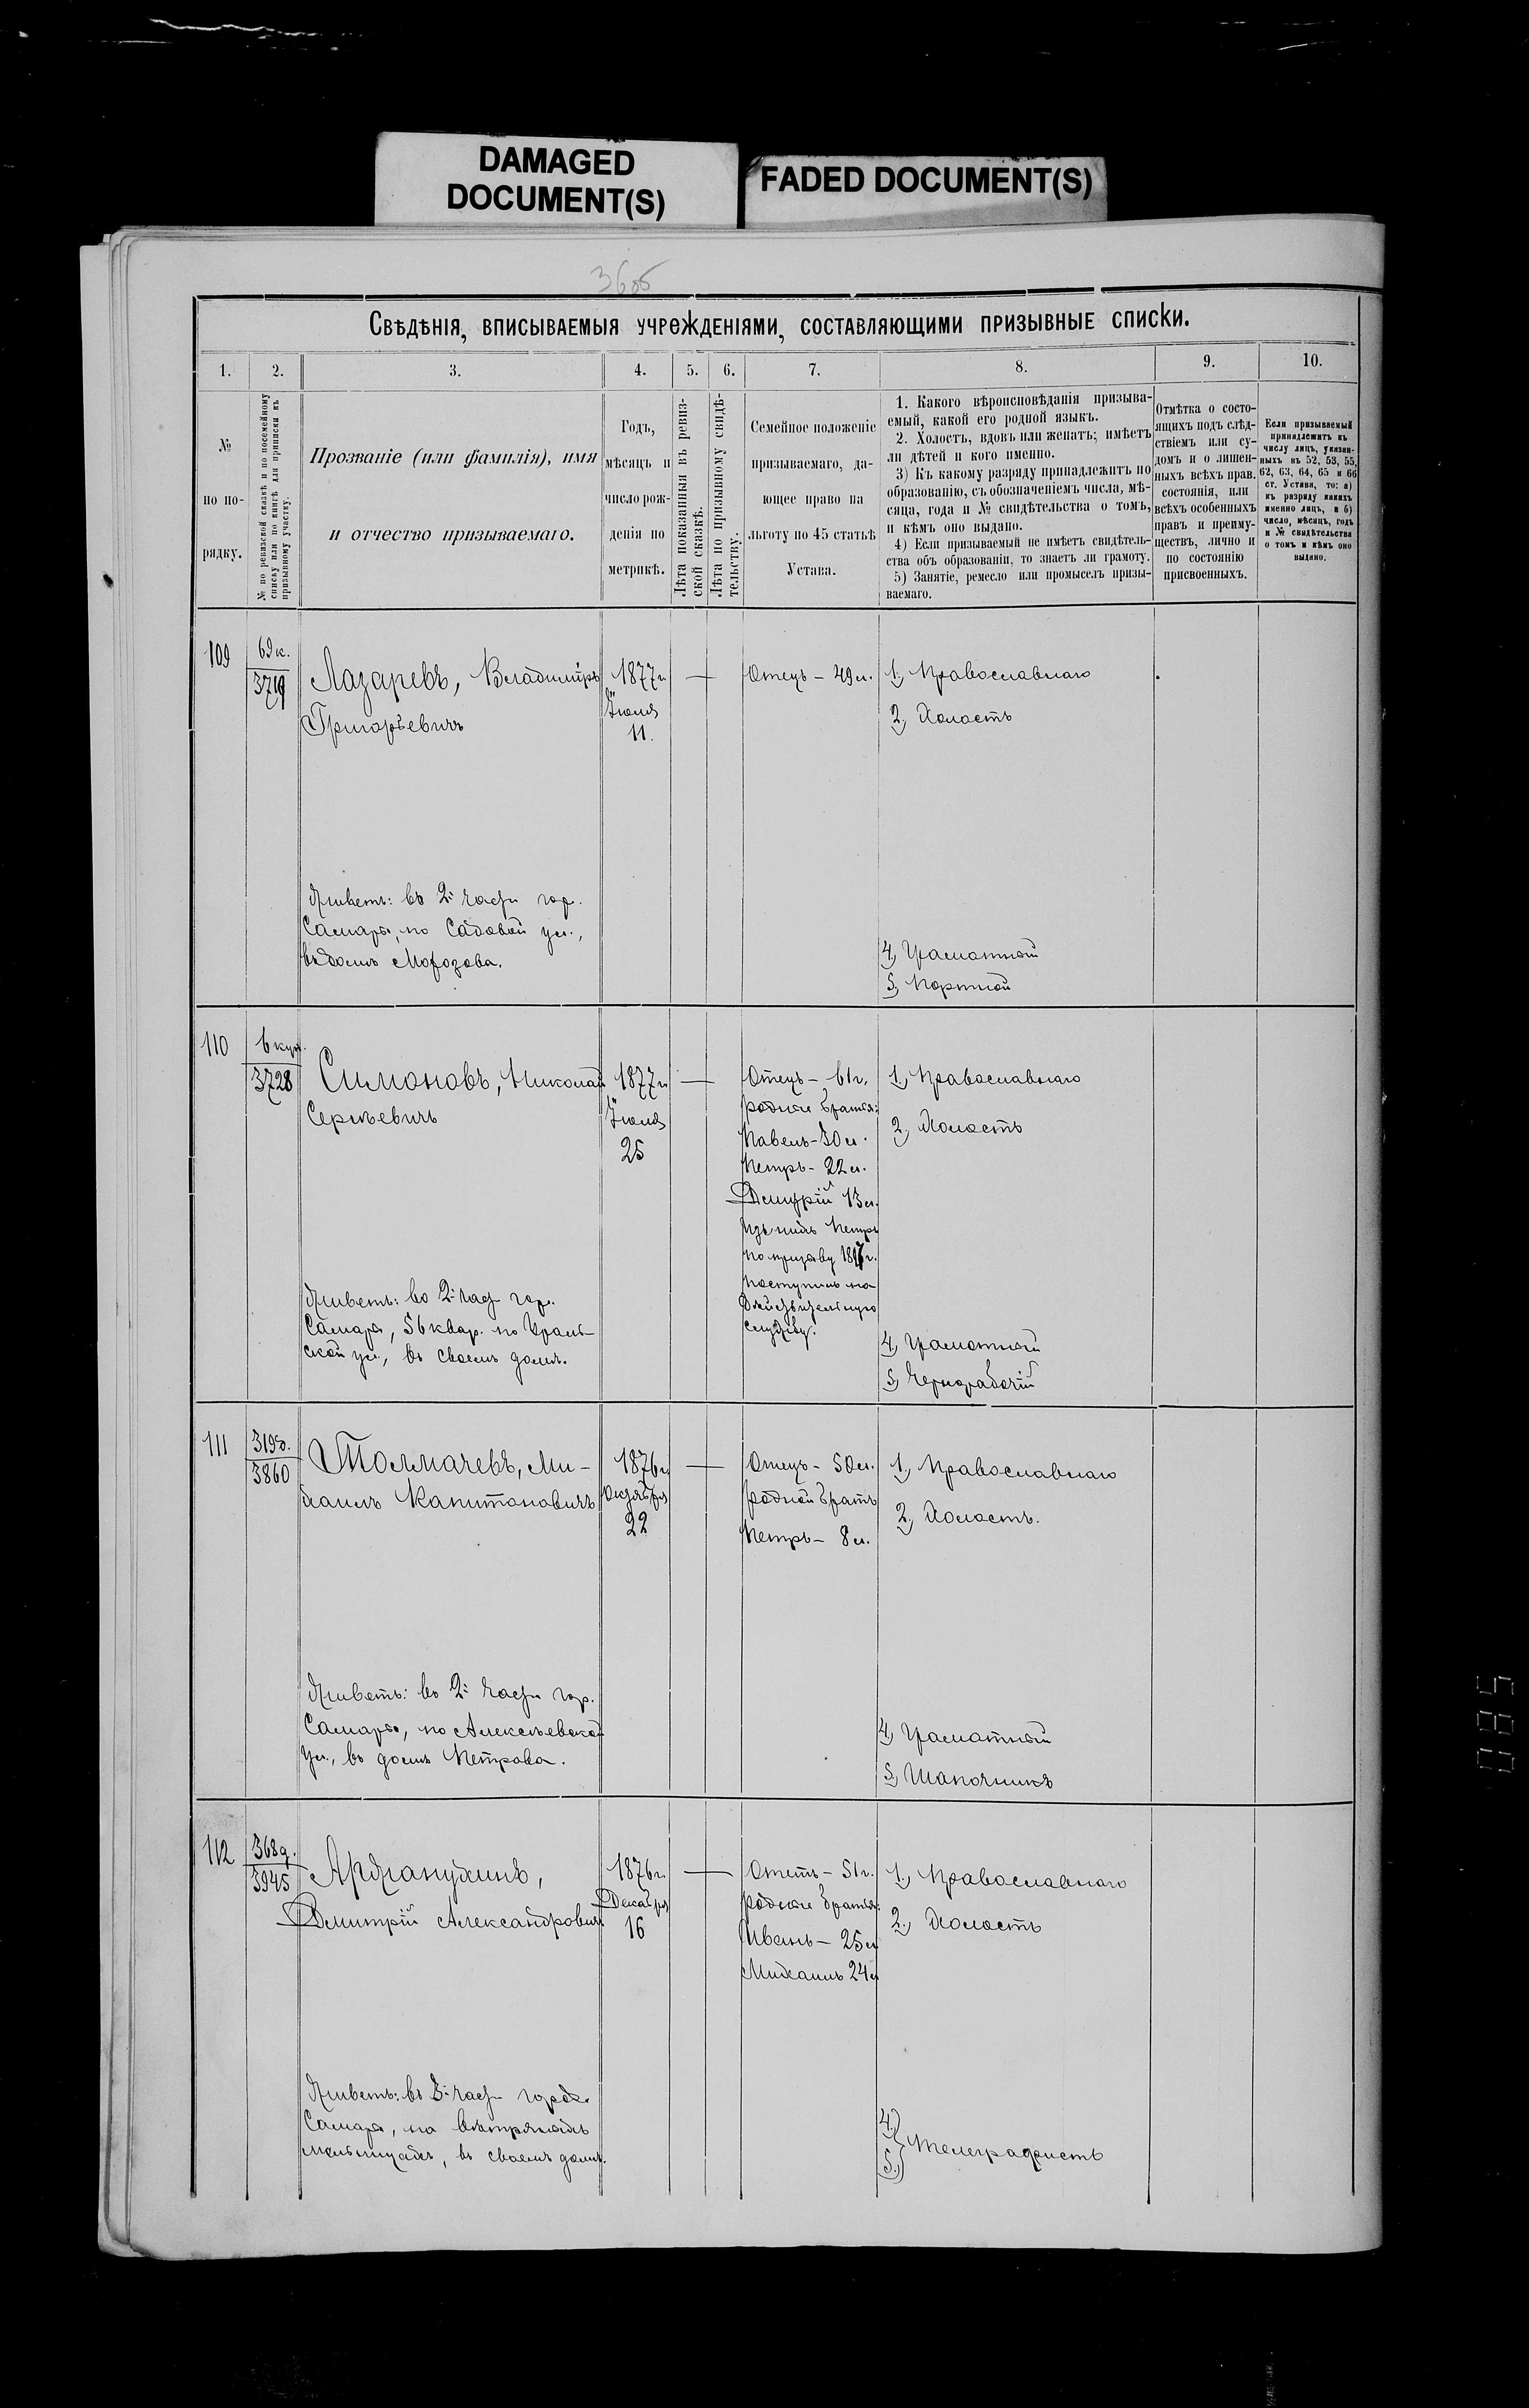 DAMAGED
DOCUMENT(S)
FADED DOCUMENT(S)
Свѣдѣнія, вписываемыя учрежденіями, составляющими призывные списки.
1.
2.
3.
4.
5.
6.
7.
8.
9.
10.
№
по по-
рядку.
№ по ревизской сказкѣ и по посемейному
списку или по книгѣ для приписки къ
призывному участку.
Прозваніе (или фамилія), имя
и отчество призываемаго.
Годъ,
мѣсяцъ и
число рож-
денія по
метрикѣ.
Лѣта показанныя въ ревиз-
ской сказкѣ.
Лѣта по призывному свидѣ-
тельству.
Семейное положеніе
призываемаго, да-
ющее право на
льготу по 45 статьѣ
Устава.
1. Какого вѣроисповѣданія призыва-
емый, какой его родной языкъ.
2. Холостъ, вдовъ или женатъ; имѣетъ
ли дѣтей и кого именно.
3) Къ какому разряду принадлежитъ по
образованію, съ обозначеніемъ числа, мѣ-
сяца, года и № свидѣтельства о томъ,
и кѣмъ оно выдано.
4) Если призываемый не имѣетъ свидѣтель-
ства объ образованіи, то знаетъ ли грамоту.
5) Занятіе, ремесло или промыселъ призы-
ваемаго.
Отмѣтка о состо-
ящихъ подъ слѣд-
ствіемъ или су-
домъ и о лишен-
ныхъ всѣхъ прав.
состоянія, или
всѣхъ особенныхъ
правъ и преиму-
ществъ, лично и
по состоянію
присвоенныхъ.
Если призываемый
принадлежитъ къ
числу лицъ, указан-
ныхъ въ 52, 53, 55,
62, 63, 64, 65 и 66
ст. Устава, то: а)
къ разряду какихъ
именно лицъ, и б)
число, мѣсяцъ, годъ
и № свидѣтельства
о томъ и кѣмъ оно
выдано.
109
69 к.
3719
Лазаревъ, Владиміръ
Григорьевичъ
1877 г.
Іюля
11.
Отецъ – 49 л.
1, Православнаго
2, Холостъ
Живетъ: въ 2й части гор.
Самары, по Садовой ул.,
въ домѣ Морозова.
4, Грамотный
5, Портной
110
6 куп.
3728
Симоновъ, Николай
Сергѣевичъ
1877 г.
Іюля
25
Отецъ – 61 г.
родные братья:
Павелъ – 30 л.
Петръ – 22 л.
Дмитрій 13 л.
Изъ нихъ Петръ
по призыву 1897 г.
поступилъ на
дѣйствительную
службу.
1, Православнаго
2, Холостъ
Живетъ: во 2й части гор.
Самары, 56 квар. по Ураль-
ской ул., въ своемъ домѣ.
4, Грамотный
5, Чернорабочій
111
319 д.
3860
Толмачевъ, Ми-
хаилъ Капитоновичъ
1876 г.
Октября
22
Отецъ – 50 л.
родной братъ
Петръ – 8 л.
1, Православнаго
2, Холостъ.
Живетъ: во 2й части гор.
Самары, по Алексѣевской
ул., въ домѣ Петрова.
4, Грамотный
5, Шапочникъ
112
368 д.
3945
Аржанухинъ,
Дмитрій Александровичъ
1876 г.
Декабря
16
Отецъ – 51 г.
родные братья:
Иванъ – 25 л
Михаилъ 24 л
1, Православнаго
2, Холостъ
Живетъ: въ 3й части города
Самары, на вѣтряныхъ
мельницахъ, въ своемъ домѣ.
4,
5,
Телеграфистъ
085